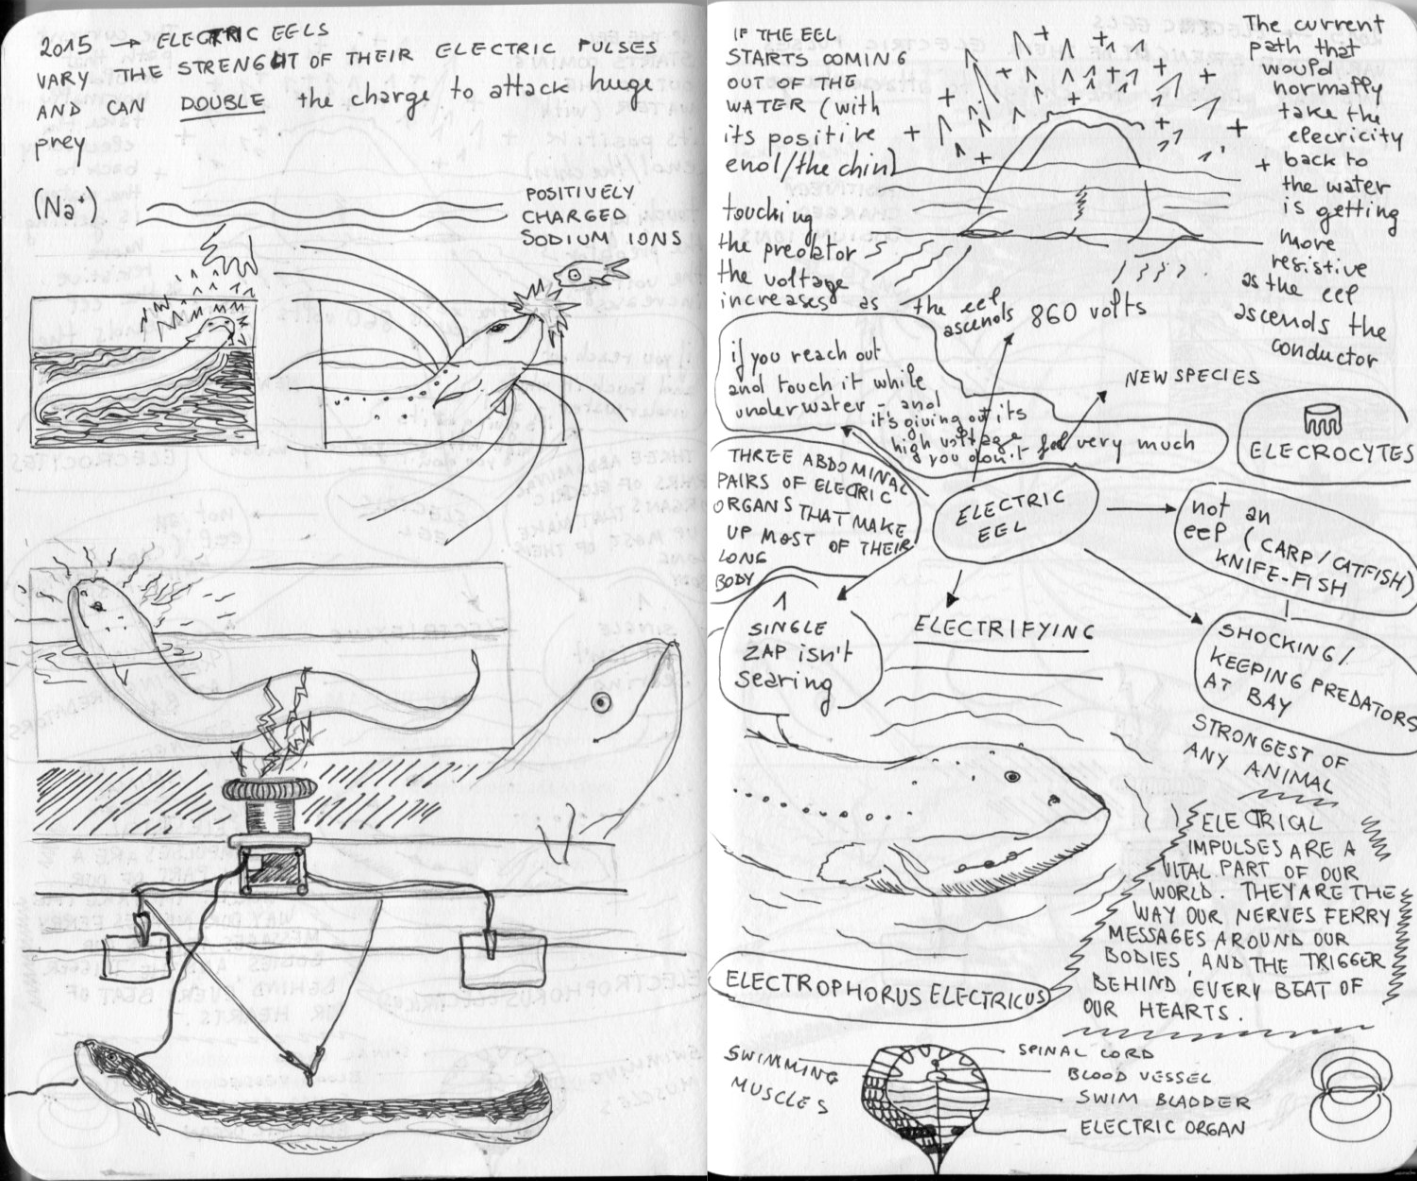 2015 → ELECTRIC EELS
VARY THE STRENGHT OF THEIR ELECTRIC PULSES
AND CAN DOUBLE the charge to attack huge
prey
(Na⁺)
POSITIVELY
CHARGED
SODIUM IONS
IF THE EEL
STARTS COMING
OUT OF THE
WATER (with
its positive
end/the chin)
touching
the predator
the voltage
increases as the eel
ascends 860 volts
The current
path that
would
normally
take the
elecricity
back to
the water
is getting
more
resistive
as the eel
ascends the
conductor
if you reach out
and touch it while
underwater and
it's giving out its
high voltage
you don't feel very much
NEW SPECIES
ELECROCYTES
THREE ABDOMINAL
PAIRS OF ELECTRIC
ORGANS THAT MAKE
UP MOST OF THEIR
LONG
BODY
ELECTRIC
EEL
not an
eel (CARP/CATFISH)
KNIFE-FISH
1
SINGLE
ZAP isn't
searing
ELECTRIFYING
SHOCKING/
KEEPING PREDATORS
AT BAY
STRONGEST OF
ANY ANIMAL
ELECTRICAL
IMPULSES ARE A
VITAL PART OF OUR
WORLD. THEY ARE THE
WAY OUR NERVES FERRY
MESSAGES AROUND OUR
BODIES, AND THE TRIGGER
BEHIND EVERY BEAT OF
OUR HEARTS.
ELECTROPHORUS ELECTRICUS
SWIMMING
MUSCLES
SPINAL CORD
BLOOD VESSEL
SWIM BLADDER
ELECTRIC ORGAN